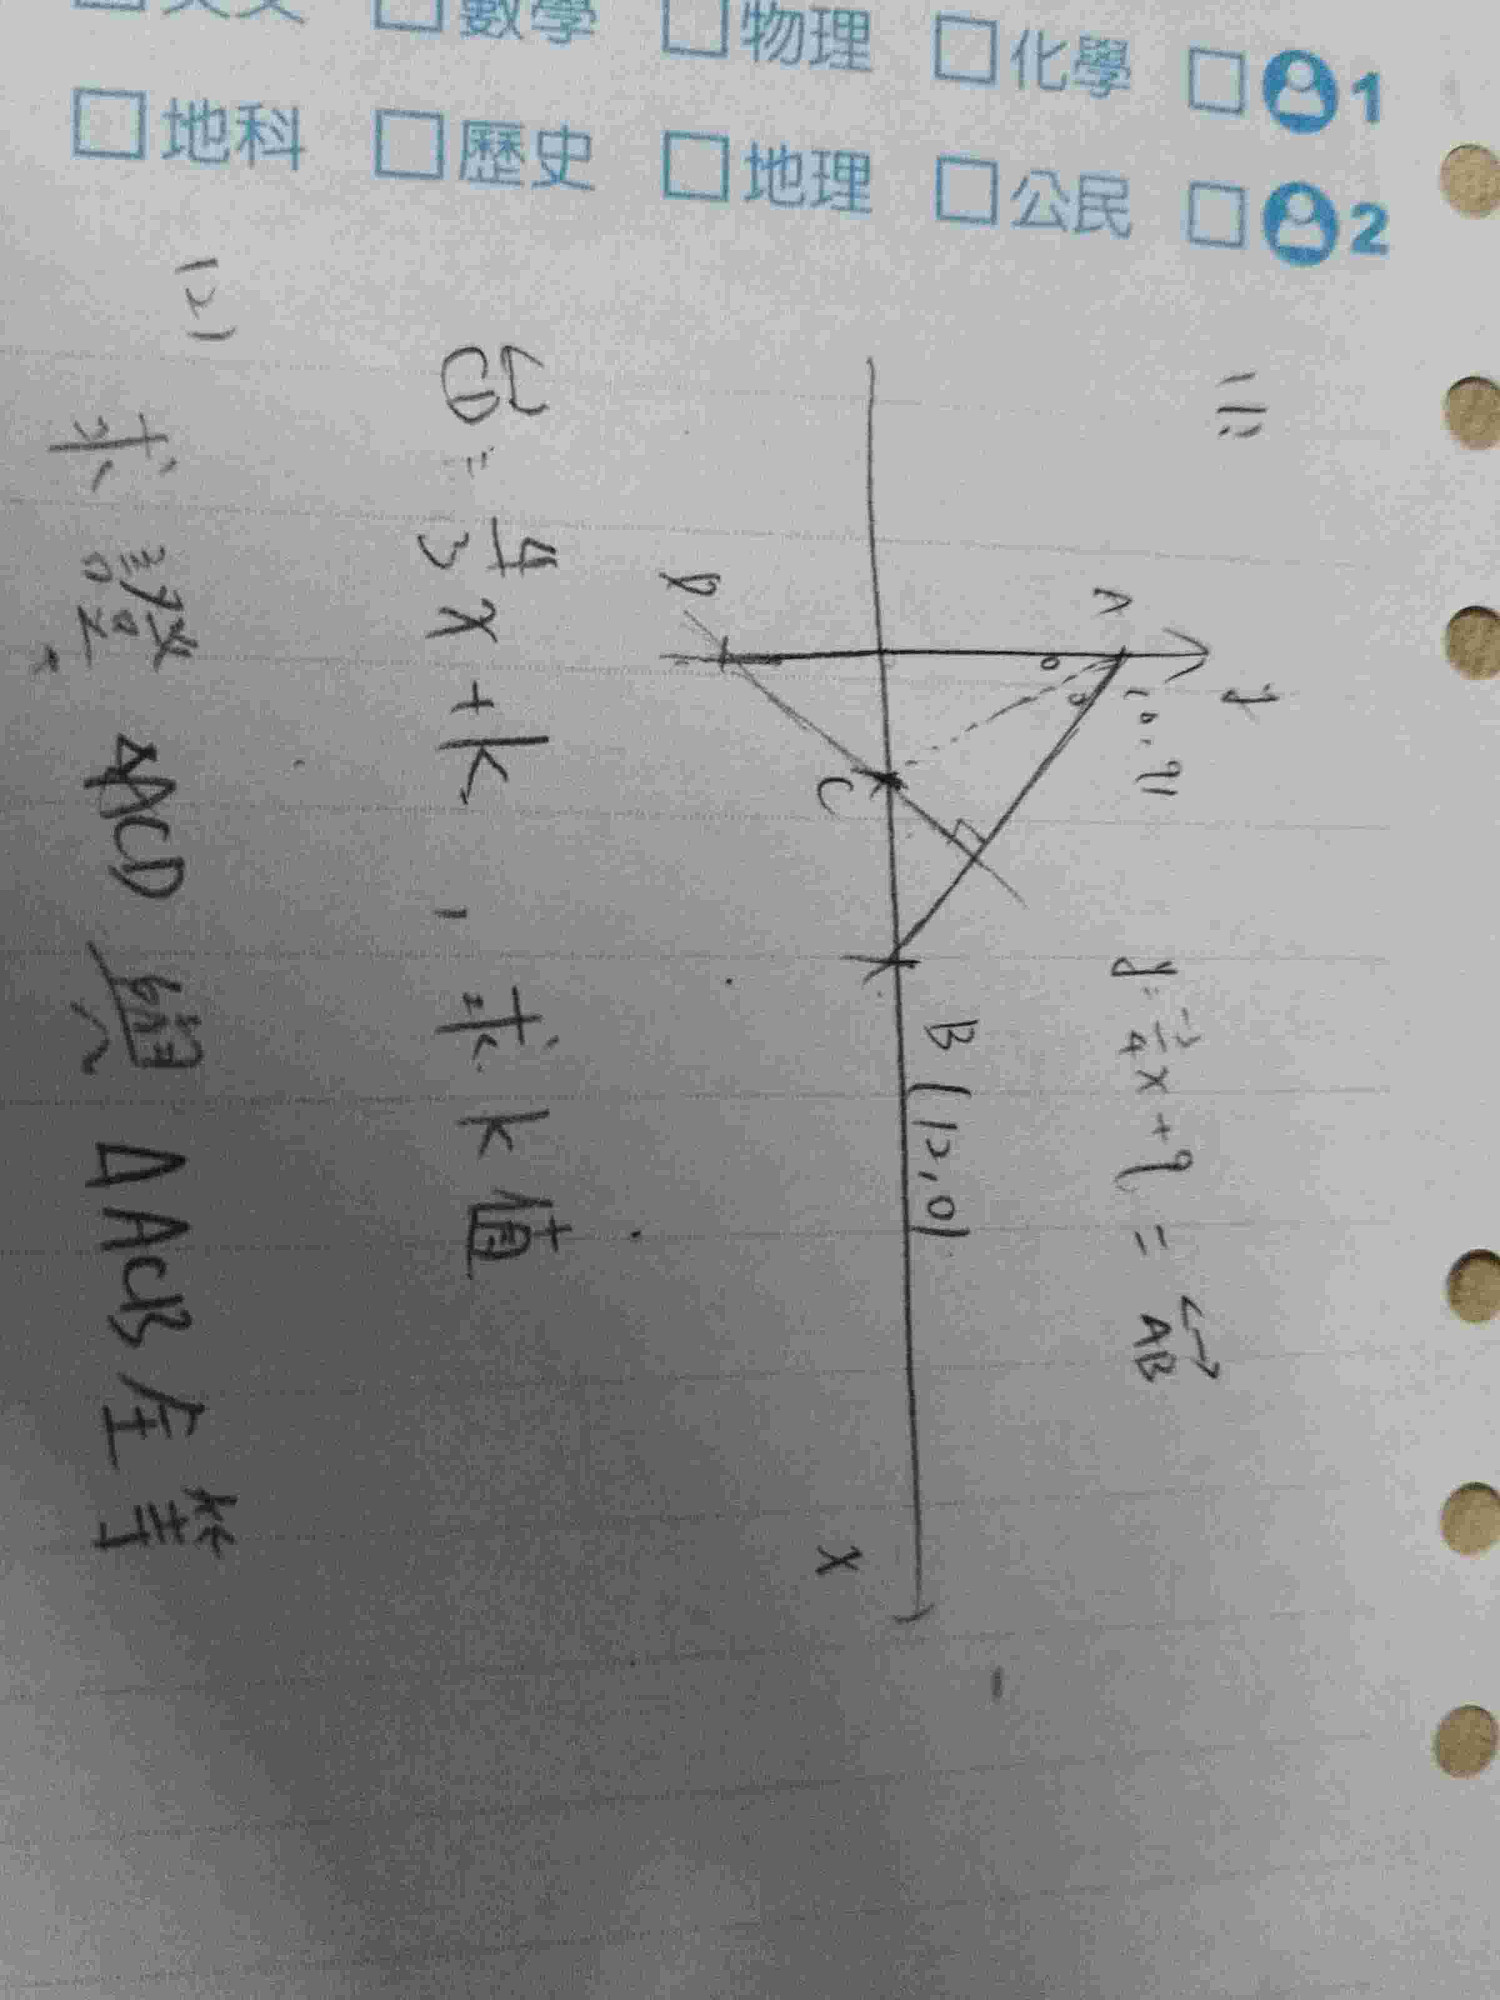 數學 物理 化學 1
地科 歷史 地理 公民 2
(1)
y
A (0,9)
y=-3/4x+9 = AB
B (12,0)
C
D
x
CD = 4/3x+k , 求k值
(2) 求證 △ACD 與 △ACB 全等